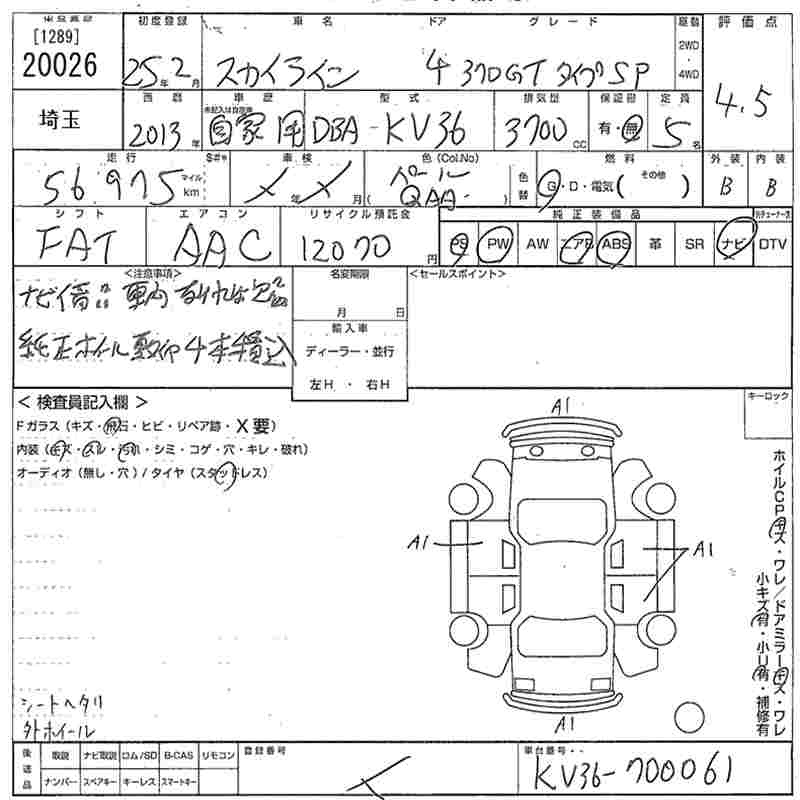 [1289] 初度登録 車名 ドア グレード 駆動 評価点
20026 25年2月 スカイライン 4 370GT タイプSP 2WD・4WD 4.5
埼玉 西暦 車歴 型式 排気量 保証書 定員
2013年 未記入は自家用 自家用 DBA-KV36 3700cc 有・無 5名
走行 $#* 車検 色(Col.No) 色替 燃料 外装 内装
56,975 マイル km ×年×月 (パール QAA-) G・D・電気( その他 ) B B
シフト エアコン リサイクル預託金 純正装備品
FAT AAC 12070円 PS PW AW エアB ABS 革 SR ナビ DTV
<注意事項> 名変期限 <セールスポイント>
ナビ備品 車内なければ欠品 月 日
輸入車
純正ホイル 4本積込 ディーラー・並行
左H・右H
<検査員記入欄> キーロック
Fガラス(キズ・飛石・ヒビ・リペア跡・X要)
内装(キズ・スレ・汚れ・シミ・コゲ・穴・キレ・破れ)
オーディオ(無し・穴)/タイヤ(スタッドレス)
A1
A1
A1
A1
ホイルCPキズ・ワレ/ドアミラーキズ・ワレ
小キズ有・小U有・補修有
シートヘタリ
外ホイール
後送品 取説 ナビ取説 ロム/SD B-CAS リモコン 登録番号 車台番号
ナンバー スペアキー キーレス スマートキー KV36-700061